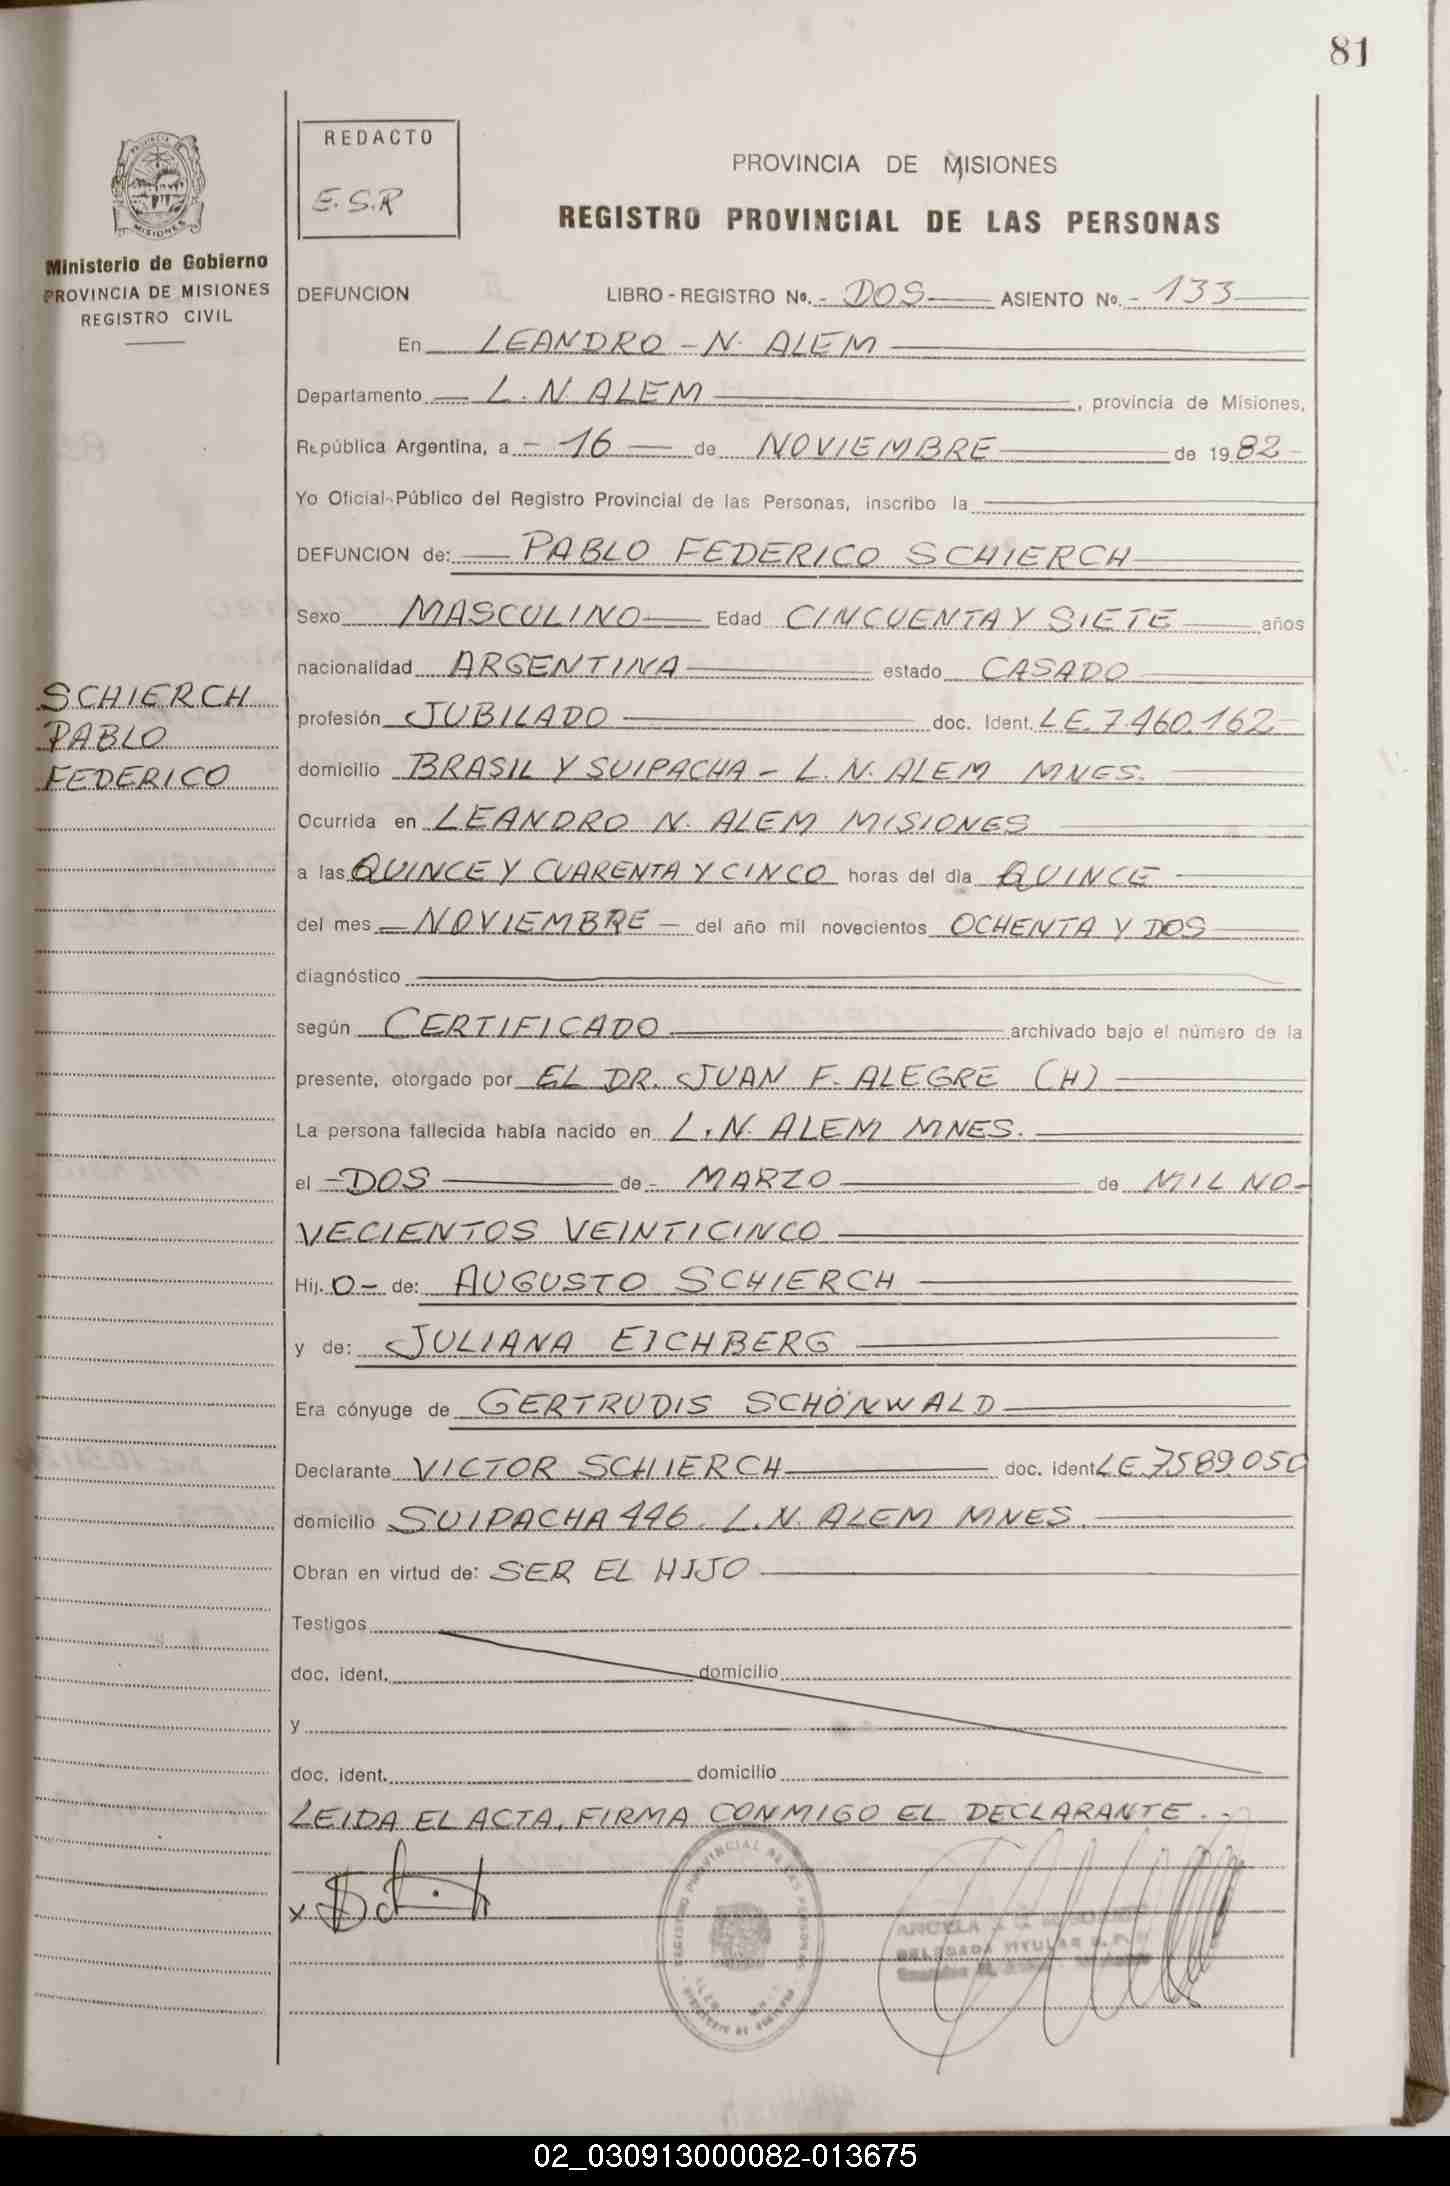 81
PROVINCIA DE MISIONES
Ministerio de Gobierno
PROVINCIA DE MISIONES
REGISTRO CIVIL
REDACTO
E.S.R
PROVINCIA DE MISIONES
REGISTRO PROVINCIAL DE LAS PERSONAS
DEFUNCION LIBRO - REGISTRO Nº. - DOS ASIENTO Nº. - 133
En LEANDRO - N. ALEM
Departamento L. N. ALEM, provincia de Misiones,
República Argentina, a - 16 - de NOVIEMBRE de 1982 -
Yo Oficial Público del Registro Provincial de las Personas, inscribo la
DEFUNCION de: PABLO FEDERICO SCHIERCH
Sexo MASCULINO Edad CINCUENTA Y SIETE años
nacionalidad ARGENTINA estado CASADO
SCHIERCH
PABLO
FEDERICO
profesión JUBILADO doc. Ident. L.E. 7.460.162
domicilio BRASIL Y SUIPACHA - L. N. ALEM MNES.
Ocurrida en LEANDRO N. ALEM MISIONES
a las QUINCE Y CUARENTA Y CINCO horas del día QUINCE
del mes NOVIEMBRE - del año mil novecientos OCHENTA Y DOS
diagnóstico
según CERTIFICADO archivado bajo el número de la
presente, otorgado por EL DR. JUAN F. ALEGRE (H)
La persona fallecida había nacido en L. N. ALEM MNES.
el - DOS de - MARZO de MIL NO-
VECIENTOS VEINTICINCO
Hij. O - de: AUGUSTO SCHIERCH
y de: JULIANA EICHBERG
Era cónyuge de GERTRUDIS SCHÖNWALD
Declarante VICTOR SCHIERCH doc. ident L.E. 7589.050
domicilio SUIPACHA 446. L. N. ALEM MNES.
Obran en virtud de: SER EL HIJO
Testigos
doc. ident. domicilio
y
doc. ident. domicilio
LEIDA EL ACTA, FIRMA CONMIGO EL DECLARANTE. -
x
REGISTRO PROVINCIAL DE LAS PERSONAS
DELEGADA TITULAR R.P.P.
02_030913000082-013675